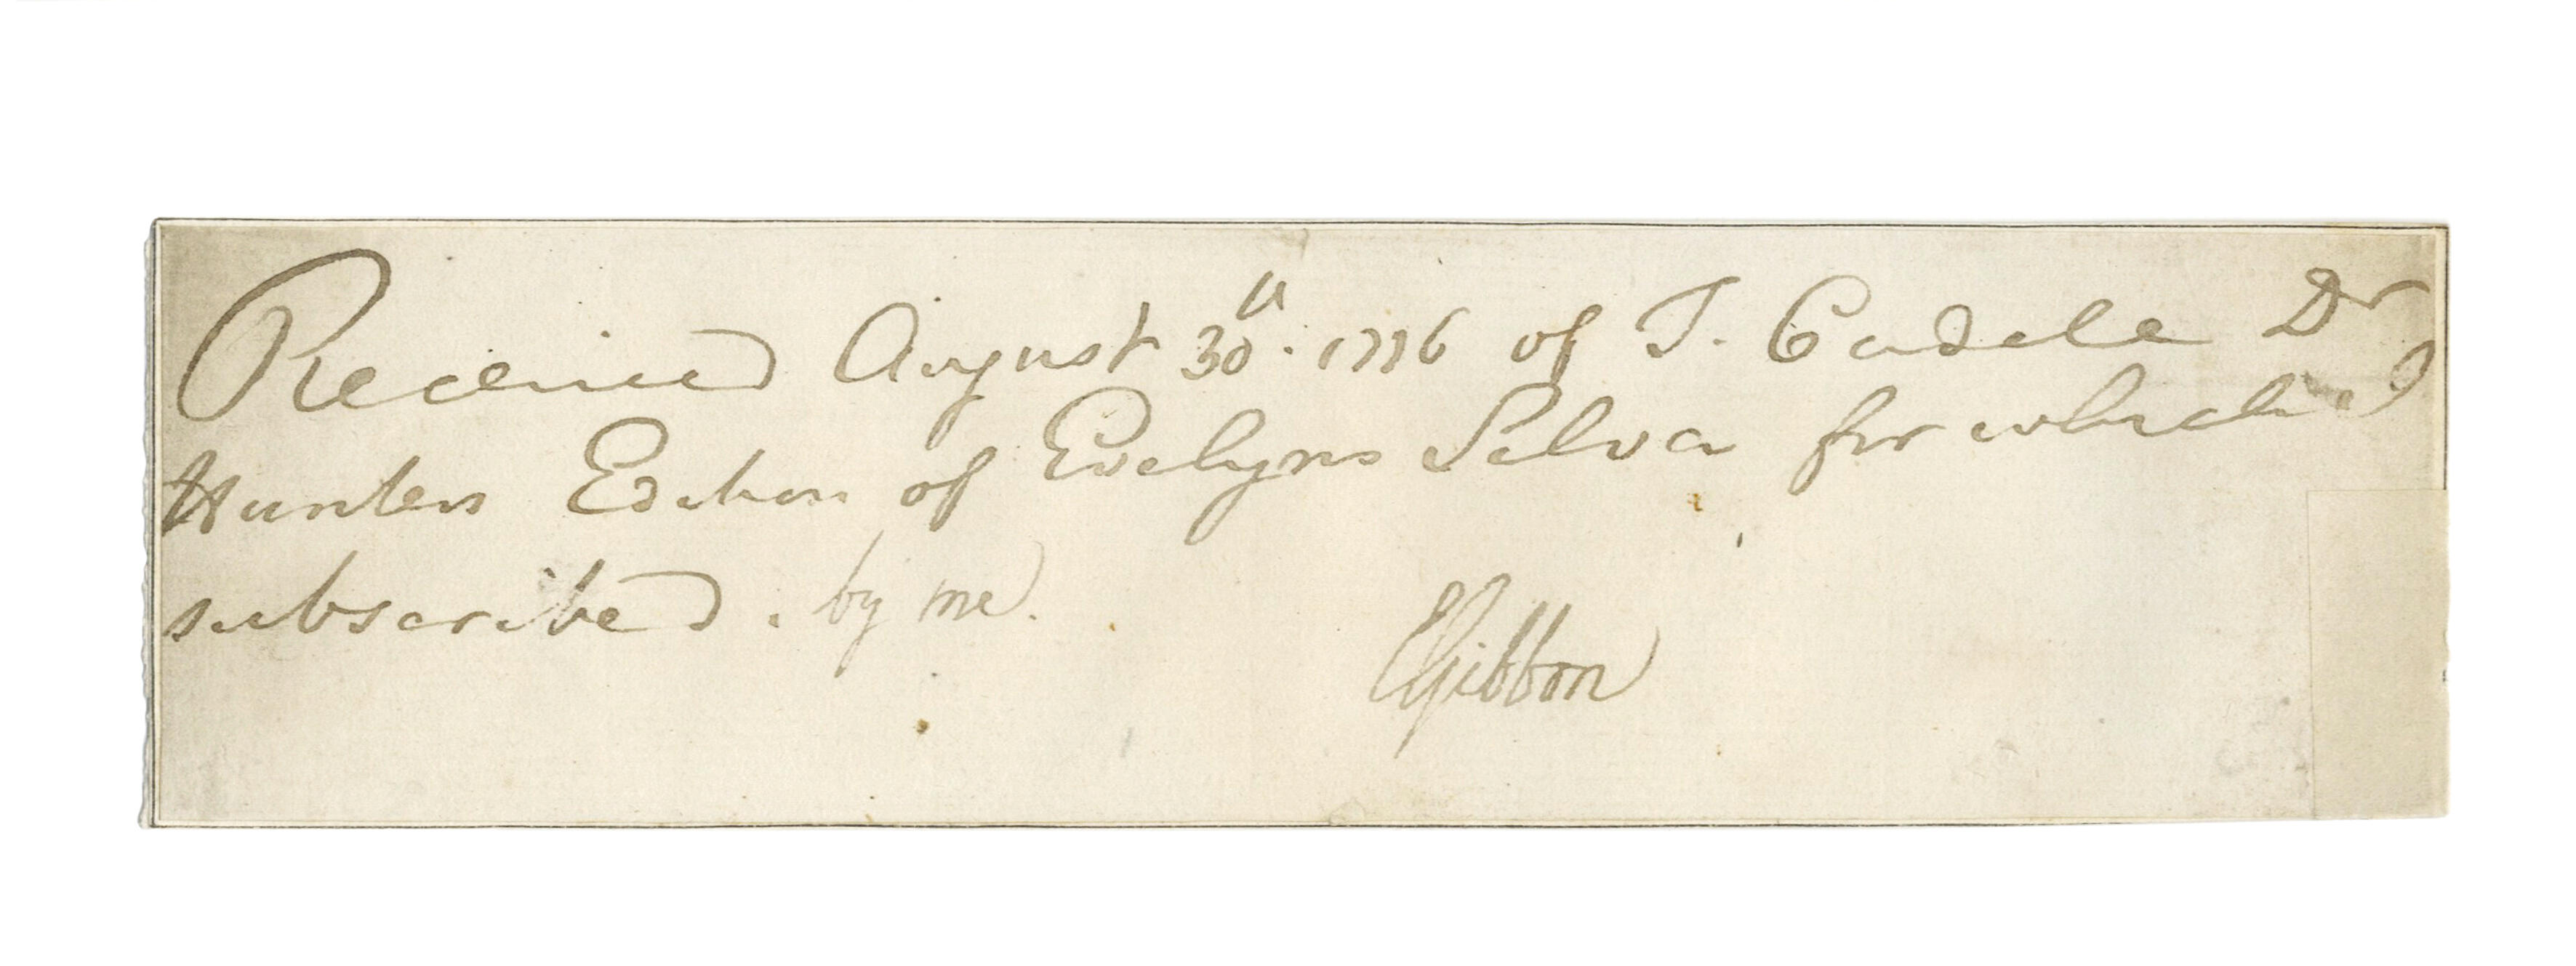 Received August 30th. 1776 of T. Cadele Dr
Hunters Edition of Evelyns Silva for which I
subscribed. by me.
EGibbon